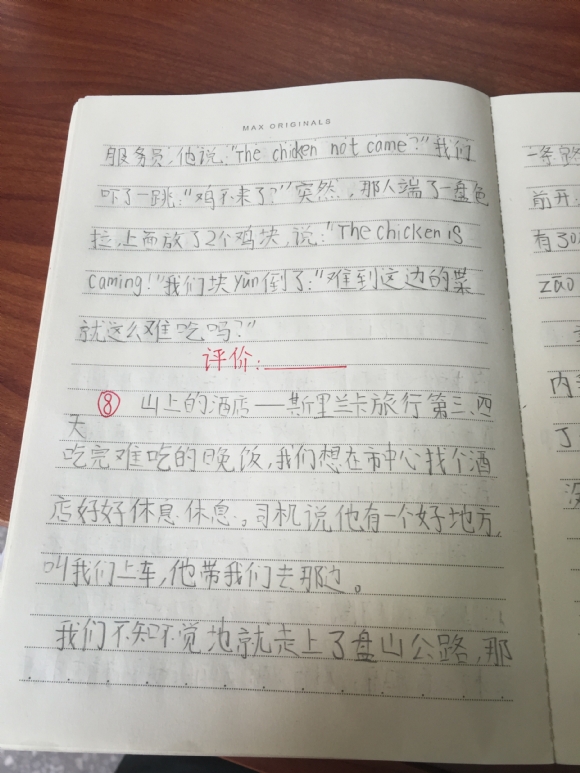 MAX ORIGINALS
服务员,他说:"The chicken not came?"我们
吓了一跳:"鸡不来了?"突然,那人端了一盘色
拉,上面放了2个鸡块,说:"The chicken is
caming!"我们块yūn倒了:"难到这边的菜
就这么难吃吗?"
评价:
⑧ 山上的酒店—斯里兰卡旅行第三、四
天
吃完难吃的晚饭,我们想在市中心找个酒
店好好休息休息。司机说他有一个好地方,
叫我们上车,他带我们去那边。
我们不知不觉地就走上了盘山公路,那
一条
前开
有30
zāo
内
丁